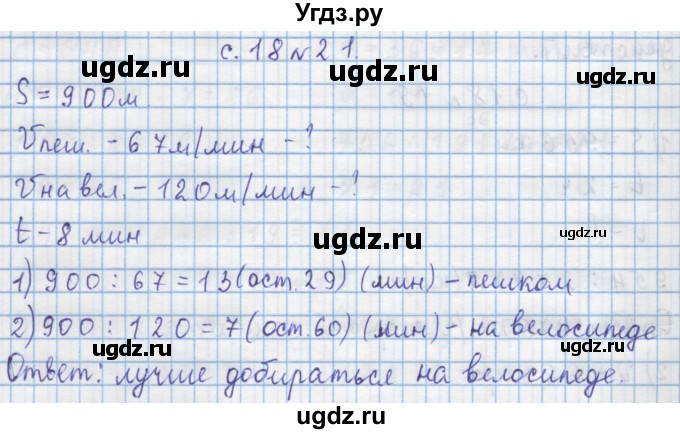 Угдз.ру
с. 18 № 21.
ugdz.ru ugdz.ru
S = 900м
Vпеш. - 67м/мин - ?
ugdz.ru
Vна вел. - 120м/мин - ?
t - 8 мин
ugdz.ru
1) 900 : 67 = 13 (ост. 29) (мин) - пешком
ugdz.ru ugdz.ru
2) 900 : 120 = 7 (ост. 60) (мин) - на велосипеде
Ответ: лучше добираться на велосипеде.
ugdz.ru